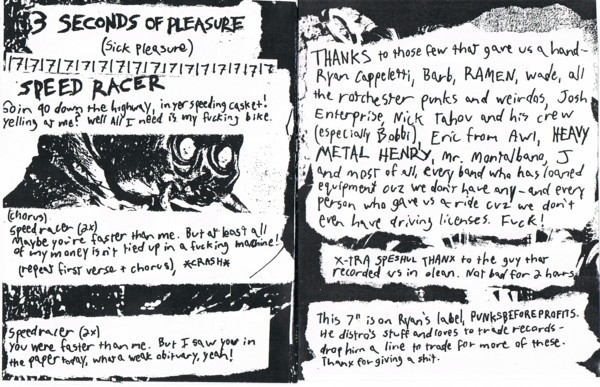 3 SECONDS OF PLEASURE
(Sick Pleasure)
SPEED RACER
Goin 90 down the highway, in yer speeding casket!
Yelling at me? Well All I need is my fucking bike.
(chorus)
Speed racer (2x)
Maybe you're faster than me. But at least all
of my money isn't tied up in a fucking machine!
(repeat first verse + chorus), *CRASH*
Speed racer (2x)
You were faster than me. But I saw your in
the paper today, what a weak obituary, yeah!
THANKS to those few that gave us a hand-
Ryan Cappeletti, Barb, RAMEN, Wade, all
the rotchester punks and weirdos, Josh
Enterprise, Nick Tahov and his crew
(especially Bobbi), Eric from Awl, HEAVY
METAL HENRY, Mr. Montalbano, J
and most of all, every band who has loaned
equipment cuz we don't have any- and every
person who gave us a ride cuz we don't
even have driving licenses. Fuck!
X-TRA SPESHUL THANX to the guy that
recorded us in olean. Not bad for 2 hours
This 7" is on Ryan's label, PUNKSBEFOREPROFITS.
He distro's stuff and loves to trade records-
drop him a line to trade for more of these.
Thanx for giving a shit.